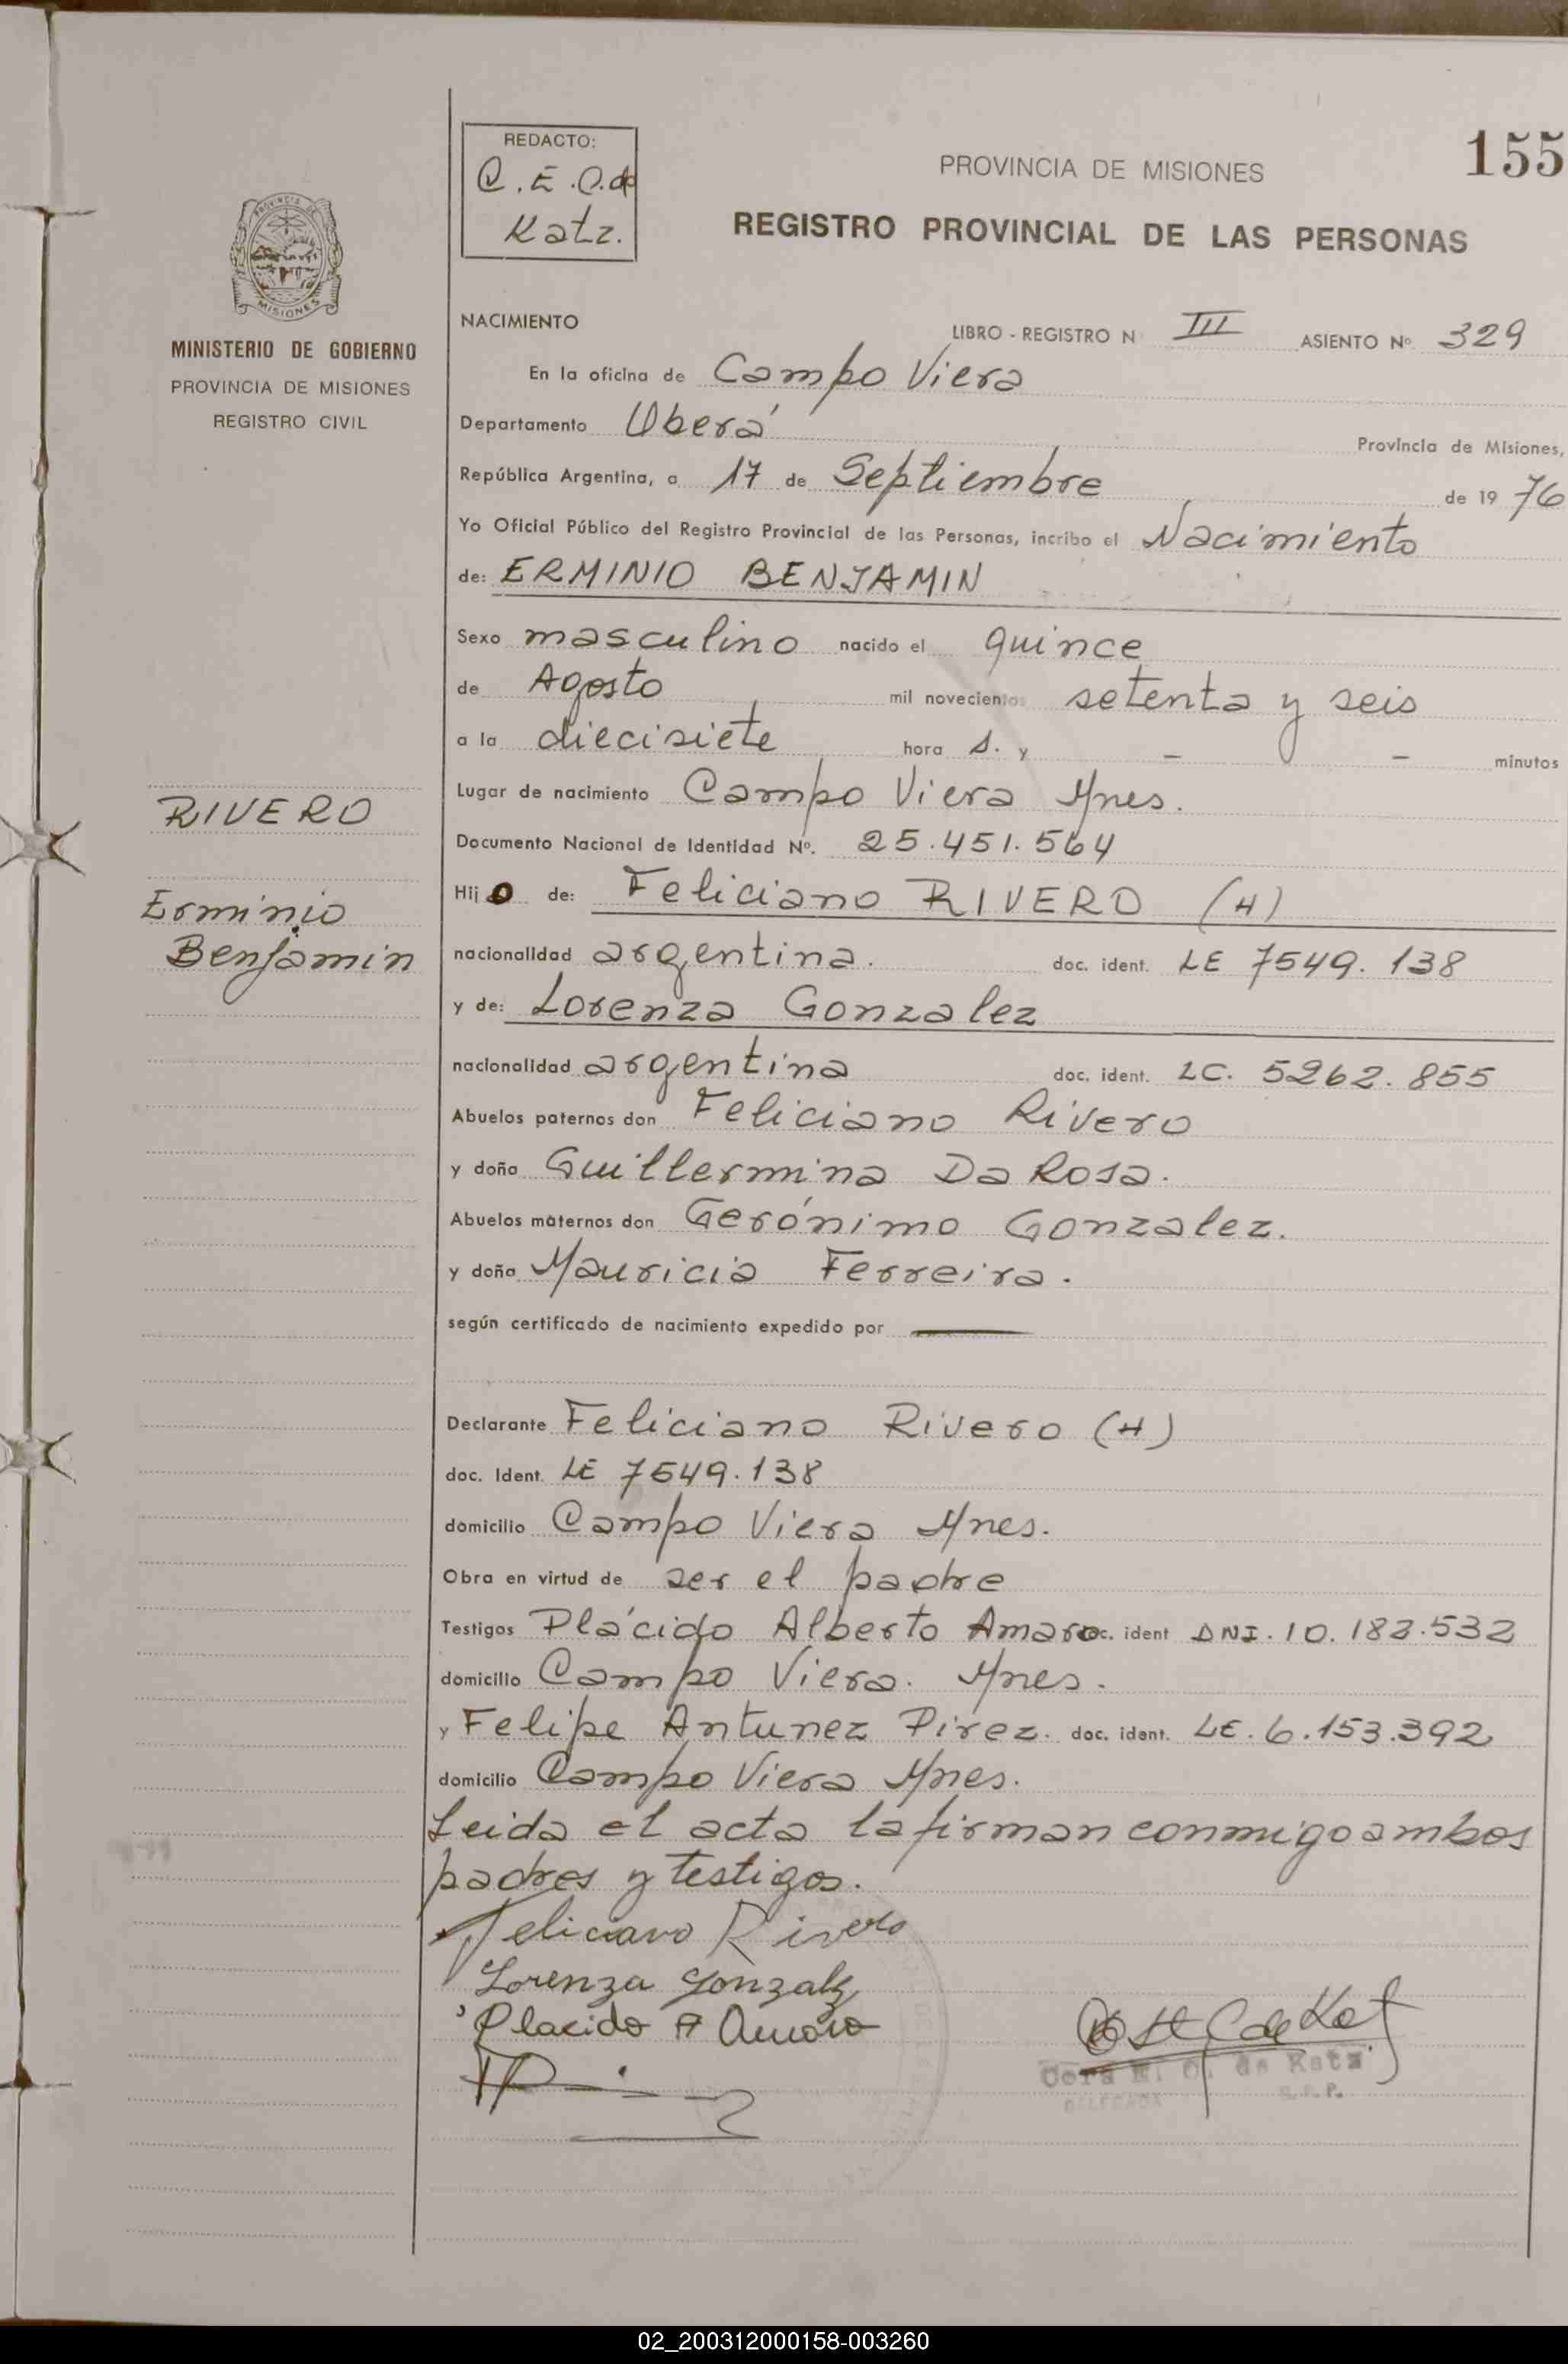 REDACTO:
C.E.O.de
Katz.
PROVINCIA DE MISIONES
155
REGISTRO PROVINCIAL DE LAS PERSONAS
PROVINCIA DE
MISIONES
MINISTERIO DE GOBIERNO
PROVINCIA DE MISIONES
REGISTRO CIVIL
NACIMIENTO
LIBRO - REGISTRO N III ASIENTO Nº 329
En la oficina de Campo Viera
Departamento Oberá Provincia de Misiones,
República Argentina, a 17 de Septiembre de 19 76
Yo Oficial Público del Registro Provincial de las Personas, incribo el Nacimiento
de: ERMINIO BENJAMIN
Sexo masculino nacido el quince
de Agosto mil novecientos setenta y seis
a la diecisiete hora s. y - - minutos
Lugar de nacimiento Campo Viera Mnes.
RIVERO
Documento Nacional de Identidad Nº. 25.451.564
Hijo de: Feliciano RIVERO (H)
Erminio
Benjamin
nacionalidad argentina. doc. ident. LE 7549.138
y de: Lorenza Gonzalez
nacionalidad argentina doc. ident. LC. 5262.855
Abuelos paternos don Feliciano Rivero
y doña Guillermina Da Rosa.
Abuelos maternos don Gerónimo Gonzalez.
y doña Mauricia Ferreira.
según certificado de nacimiento expedido por
Declarante Feliciano Rivero (H)
doc. Ident. LE 7549.138
domicilio Campo Viera Mnes.
Obra en virtud de ser el padre
Testigos Plácido Alberto Amaro doc. ident DNI. 10.182.532
domicilio Campo Viera. Mnes.
y Felipe Antunez Pirez. doc. ident. LE. 6.153.392
domicilio Campo Viera Mnes.
Leida el acta la firman conmigo ambos
padres y testigos.
Feliciano Rivero
Lorenza Gonzalz
Placido A Amaro
de Katz
DELEGADA
02_200312000158-003260